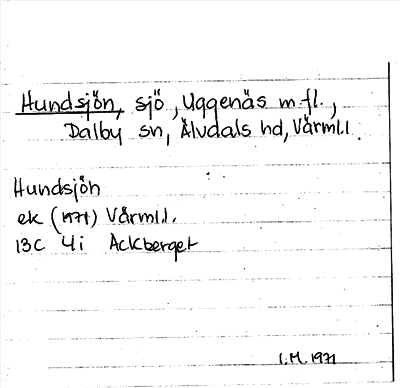 Hundsjön, sjö, Uggenäs m.fl.,
Dalby sn, Älvdals hd, Värml.l.
Hundsjön
ek (1971) Värml.l.
13C 4i Ackberget
I.M. 1971